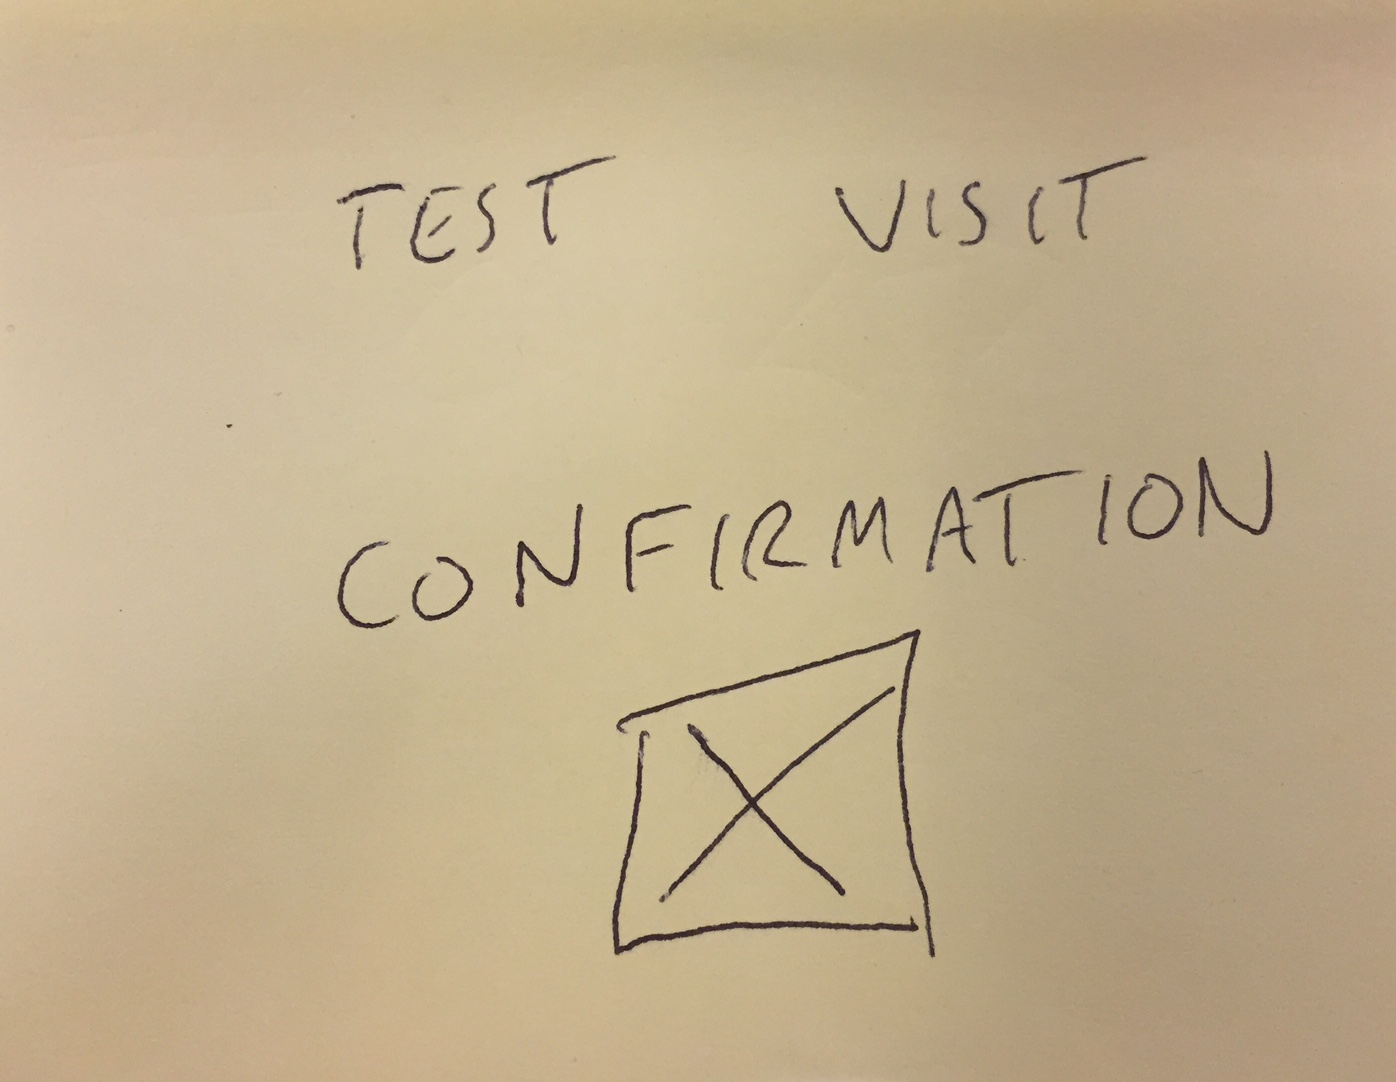 TEST VISIT
CONFIRMATION